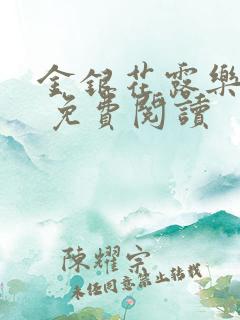 金銀花露樂
免費閱讀
陳耀宗
未經同意禁止轉載